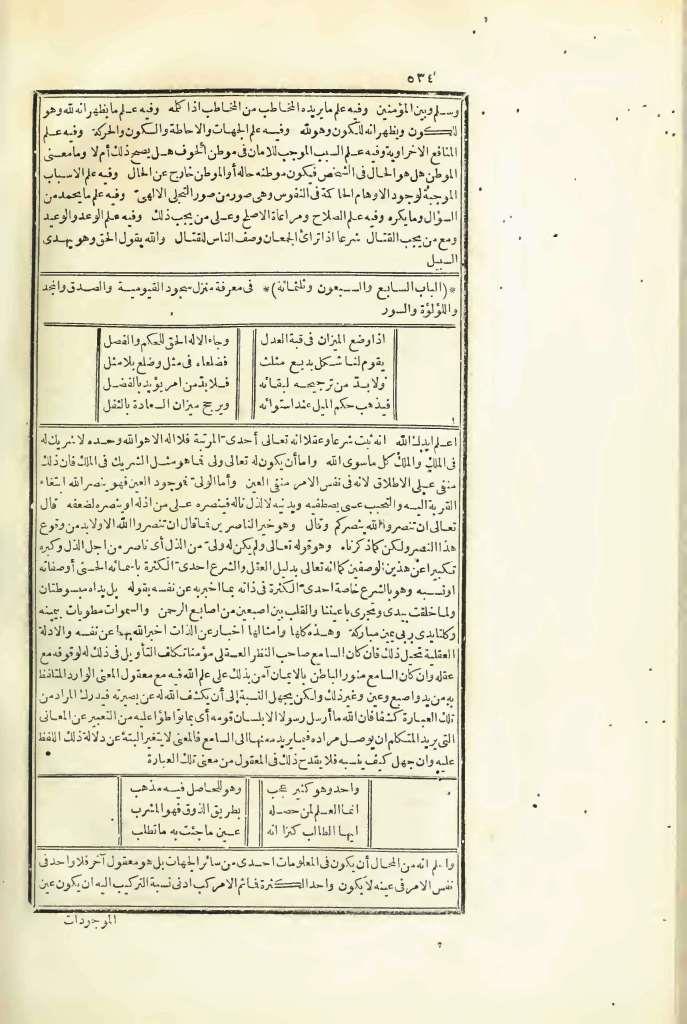 ٥٣٤
وسلم وبين المؤمنين وفيه علم ما يريده المخاطب من المخاطب اذا كلمه وفيه علم ما يظهر انه لله وهو
للكون ويظهر انه للكون وهو لله وفيه علم الجهات والاحاطة والسكون والحركة وفيه علم
المنافع الاخراوية وفيه علم السبب الموجب للامان في موطن الخوف هل يصح ذلك أم لا وما معنى
الموطن هل هو الحال في الشخص فيكون موطنه حاله أو الموطن خارج عن الحال وفيه علم الاسباب
الموجبة لوجود الاوهام الحاكمة في النفوس وهى صور من صور التجلى الالهى وفيه علم ما يحمد من
السؤال وما يكره وفيه علم الصلاح ومراعاة الاصلح وعلى من يجب ذلك وفيه علم الوعد والوعيد
ومع من يجب القتال شرعا اذا تراءى الجمعان وصف الناس للقتال والله يقول الحق وهو يهدى
السبيل
*(الباب السابع والسبعون وثلثمائة)* في معرفة منزل سجود القيومية والصدق والمجد
واللؤلؤة والسور
اذا وضع الميزان في قبة العدل وجاء الاله الحق للحكم والفصل
يقوم لنا شكل بديع مثلث فضلعاء في مثل وضلع بلا مثل
ولا بد من ترجيحه لبقائه فلا بد من امر يؤيد بالفضل
فيذهب حكم الميل عند استوائه ويرجح ميزان السعادة بالثقل
اعلم ايدك الله انه ثبت شرعا وعقلا انه تعالى أحدى المرتبة فلا اله الا هو الله وحده لا شريك له
في الملك والملك كل ما سوى الله واما أن يكون له تعالى ولى فما هو مثل الشريك في الملك فان ذلك
منفى على الاطلاق لانه في نفس الامر منفى العين وأما الولى فموجود العين فهو ينصر الله ابتغاء
القربة اليه والتحبب عسى يصطفيه ويدنيه لا لذل ناله فينصره على من اذله او ينصره لضعفه قال
تعالى ان تنصروا الله ينصركم وقال وهو خير الناصرين فما قال ان تنصروا الله الا ولا بد من وقوع
هذا النصر ولكن كما ذكرناه وهو قوله تعالى ولم يكن له ولى من الذل أى ناصر من اجل الذل وكبره
تكبيرا عن هذين الوصفين كما انه تعالى بدليل العقل والشرع احدى الكثرة باسمائه الحسنى أو صفاته
او نسبه وهو بالشرع خاصة احدى الكثرة في ذاته بما اخبر به عن نفسه بقوله بل يداه مبسوطتان
ولما خلقت بيدى وتجرى باعيننا والقلب بين اصبعين من اصابع الرحمن والسموات مطويات بيمينه
وكلتا يدى ربى يمين مباركة وهذه كلها وامثالها اخبار عن الذات اخبر الله بها عن نفسه والادلة
العقلية تحيل ذلك فان كان السامع صاحب النظر العقلى مؤمنا تكلف التأويل في ذلك لوقوفه مع
عقله وان كان السامع منور الباطن بالايمان آمن بذلك على علم الله فيه مع معقول المعنى الوارد المتلفظ
به من يد واصبع وعين وغير ذلك ولكن يجهل النسبة إلى أن يكشف الله له عن بصيرته فيدرك المراد من
تلك العبارة كشفا فان الله ما أرسل رسولا الا بلسان قومه أى بما تواطؤا عليه من التعبير عن المعانى
التى يريد المتكلم ان يوصل مراده فيما يريد منها الى السامع فالمعنى لا يتغير البتة عن دلالة ذلك اللفظ
عليه وان جهل كيف ينسب فلا يقدح ذلك في المعقول من معنى تلك العبارة
واحد وهو كثير عجب وهو للحاصل فيه مذهب
انما العلم لمن حصله بطريق الذوق فهو المشرب
ايها الطالب كنزا انه عين ما جئت به ما تطلب
واعلم انه من المحال أن يكون في المعلومات احدى من سائر الجهات بل هو معقول آخر فلا واحد في
نفس الامر في عينه لا يكون واحد الكثرة فما ثم الا مركب ادنى نسبة التركيب اليه ان يكون عين
الموجودات